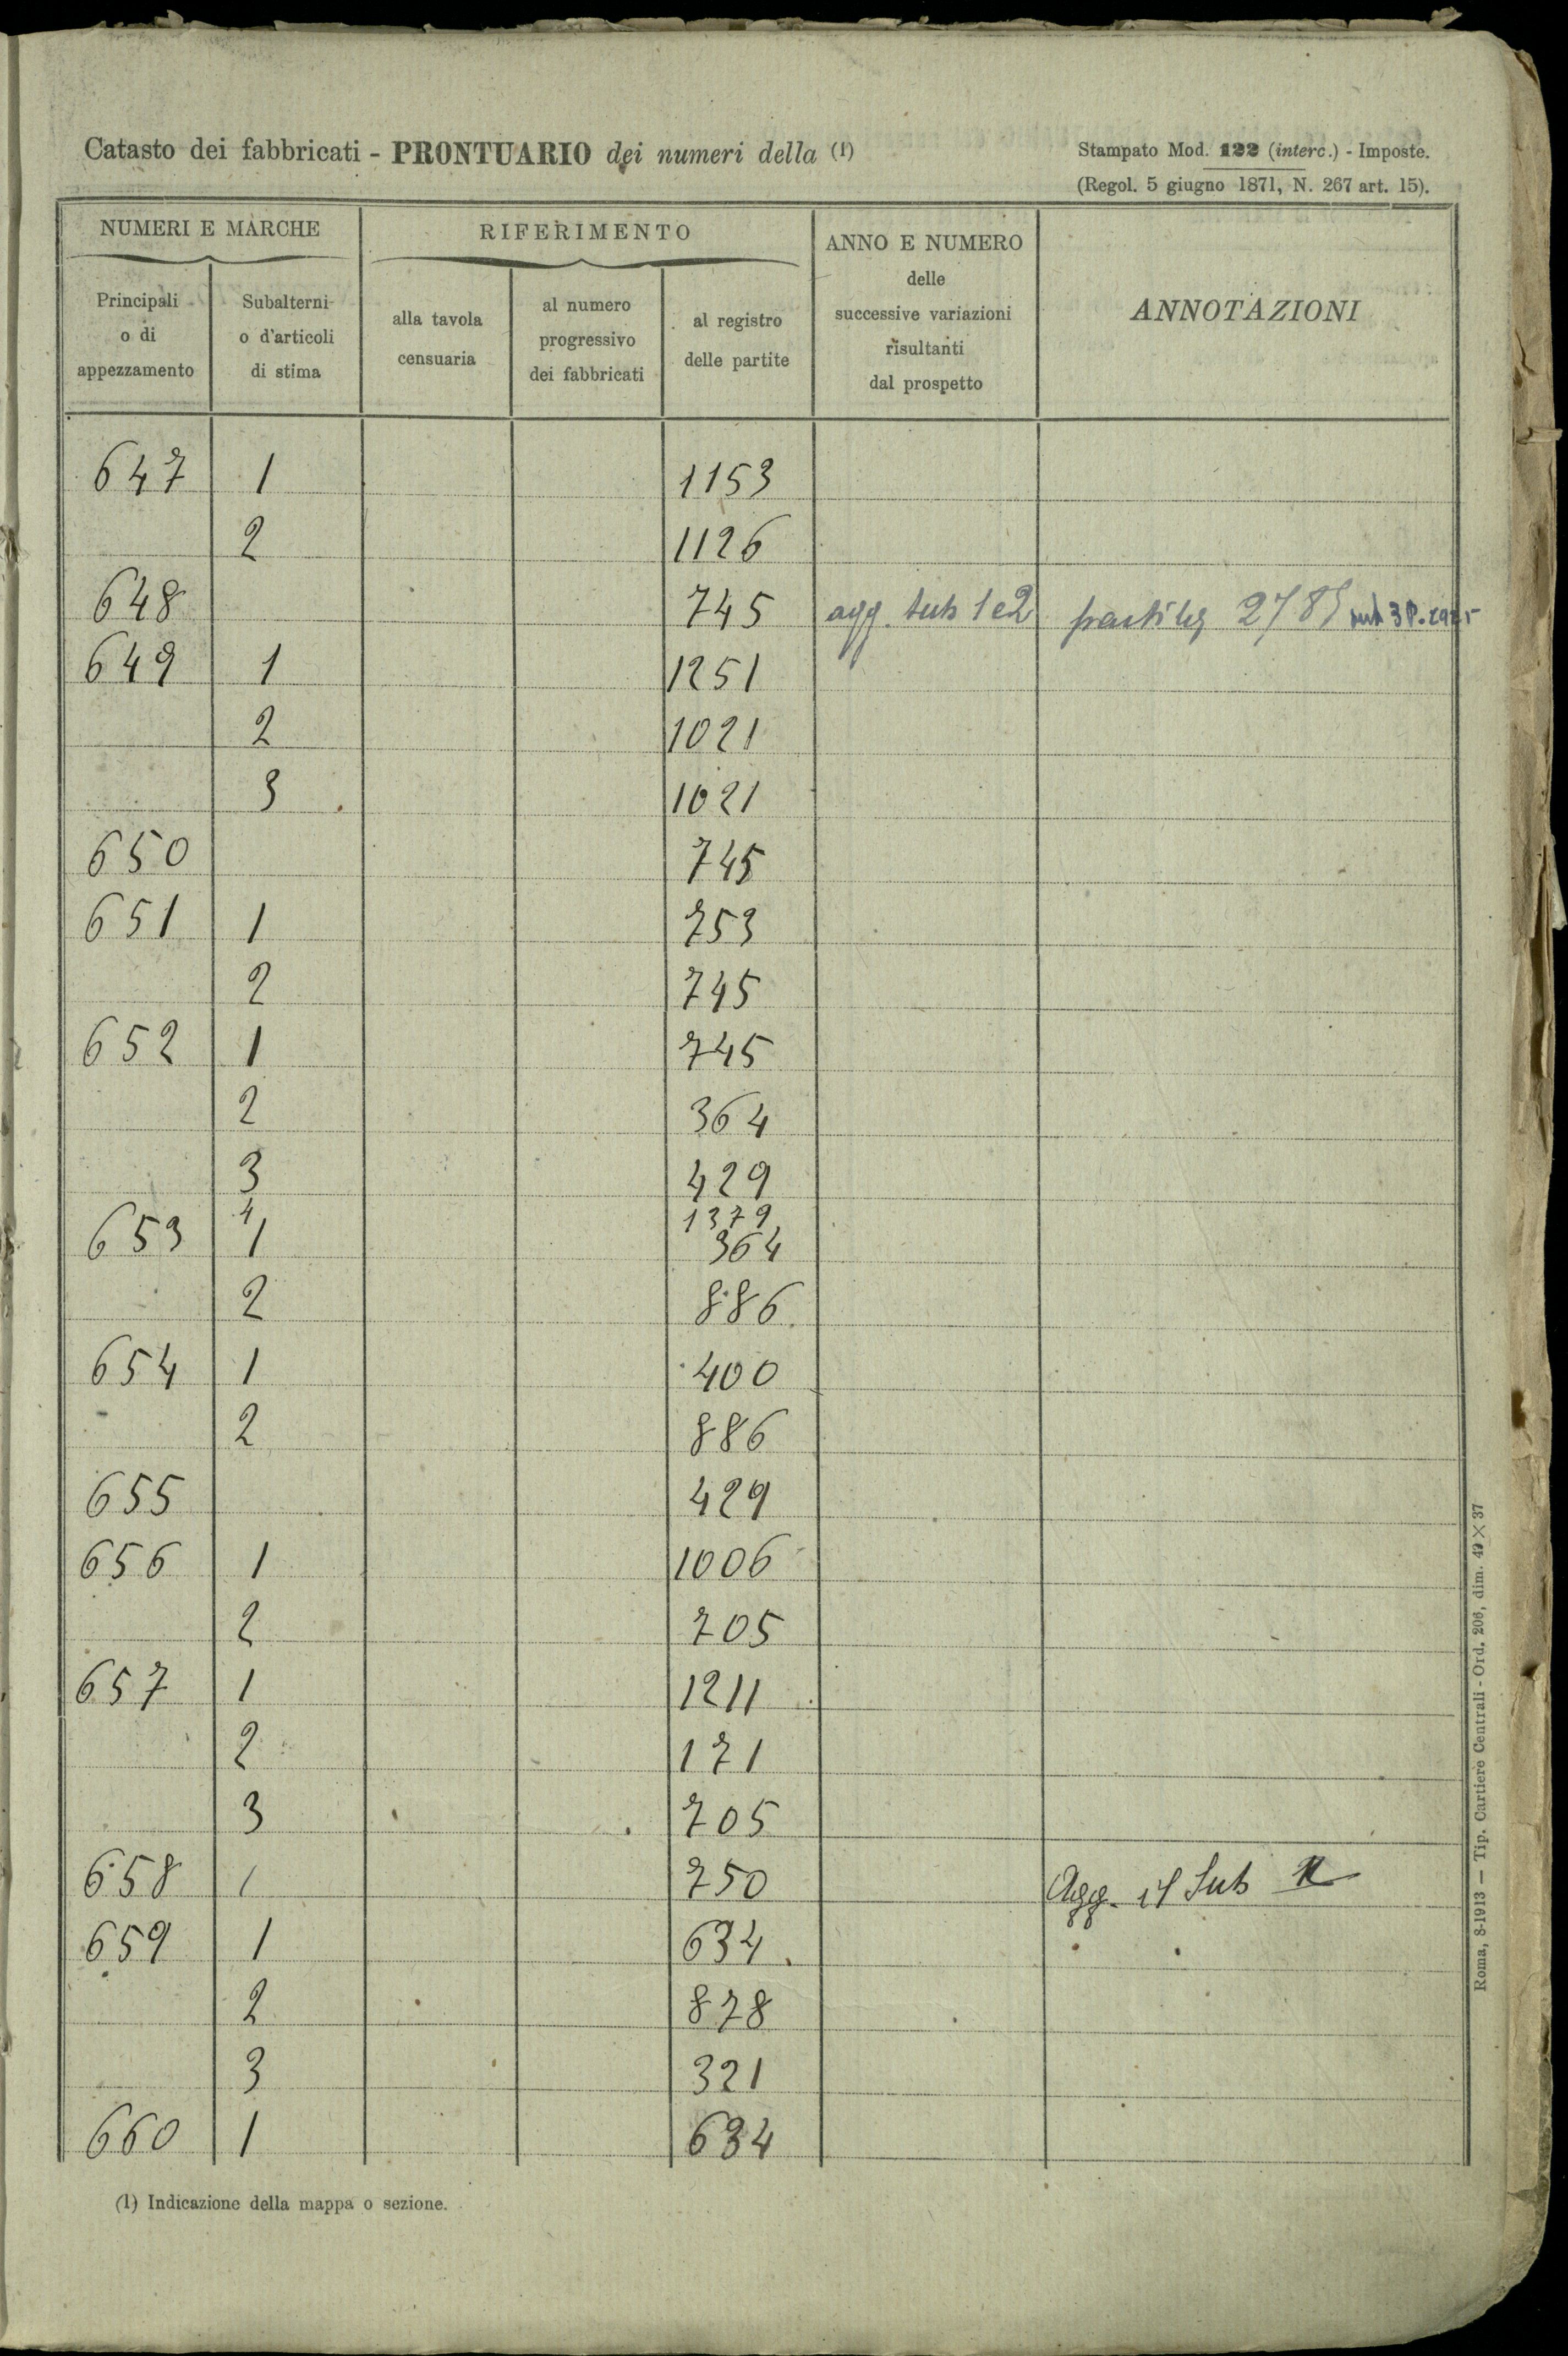 Catasto dei fabbricati - PRONTUARIO dei numeri della (1)
Stampato Mod. 122 (interc.) - Imposte.
(Regol. 5 giugno 1871, N. 267 art. 15).
NUMERI E MARCHE
RIFERIMENTO
ANNO E NUMERO
delle
successive variazioni
risultanti
dal prospetto
ANNOTAZIONI
Principali
o di
appezzamento
Subalterni
o d'articoli
di stima
alla tavola
censuaria
al numero
progressivo
dei fabbricati
al registro
delle partite
647 1 1153
2 1126
648 745 agg. sub 1 e 2 partita sub 3 P.
649 1 1251
2 1021
3 1021
650 745
651 1 753
2 745
652 1 745
2 364
3 429
4 1379
653 1 364
2 886
654 1 400
2 886
655 429
656 1 1006
2 705
657 1 1211
2 171
3 705
658 1 750 Agg. il Sub
659 1 634
2 878
3 321
660 1 634
(1) Indicazione della mappa o sezione.
Roma, 8-1913 — Tip. Cartiere Centrali - Ord. 206, dim. 49 × 37